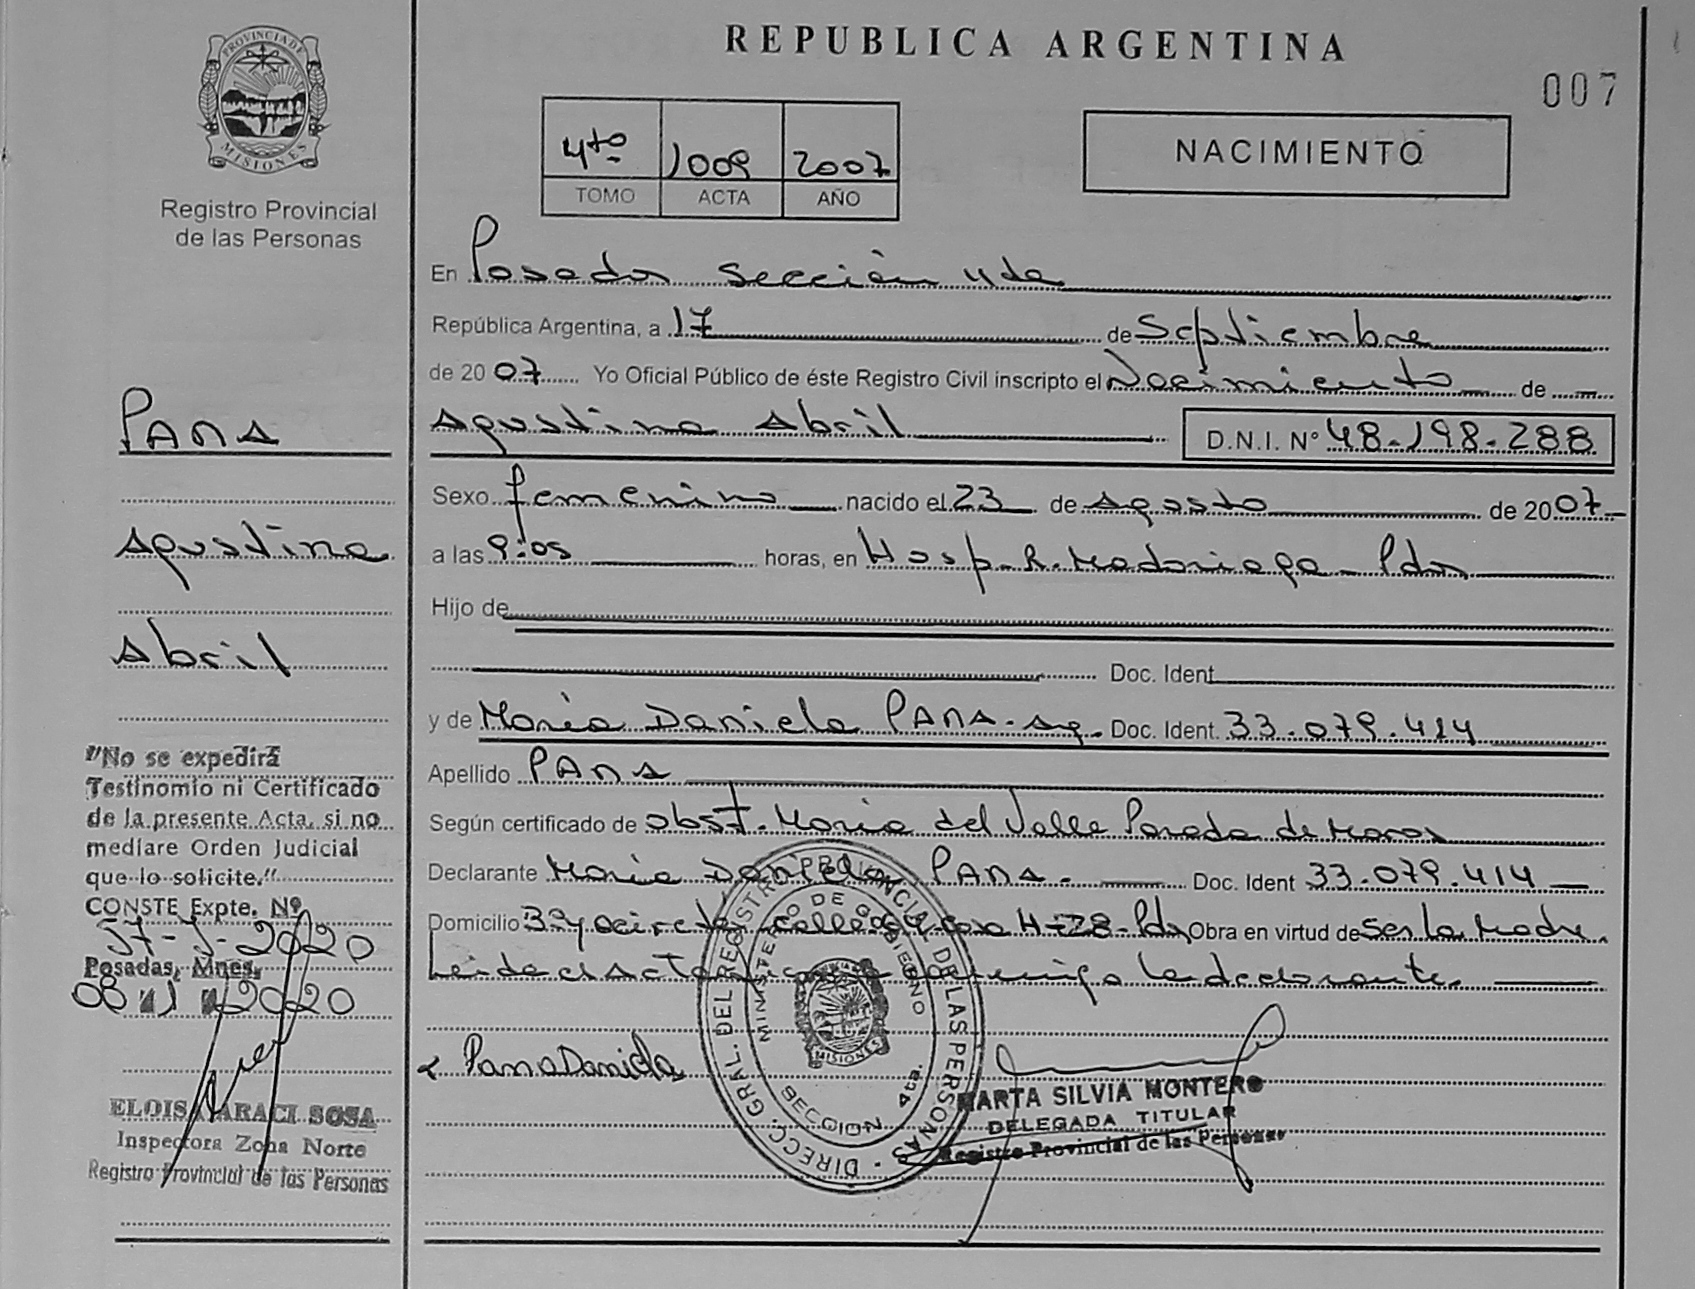 PROVINCIA DE
MISIONES
Registro Provincial
de las Personas
REPUBLICA ARGENTINA
007
4to 1009 2007
TOMO ACTA AÑO
NACIMIENTO
En Posadas Sección 4ta
República Argentina, a 17 de Septiembre
de 2007 Yo Oficial Público de éste Registro Civil inscripto el Nacimiento de
Agustina Abril D.N.I. Nº 48.198.288
Sexo femenino nacido el 23 de Agosto de 2007
a las 9:05 horas, en Hosp. R. Madariaga - Pdas
Hijo de
Doc. Ident.
y de María Daniela PANA - Arg. Doc. Ident. 33.079.414
Apellido PANA
Según certificado de obst. María del Valle Parada de
Declarante María Daniela PANA - Doc. Ident 33.079.414
Domicilio calle casa H-28 - Pdas Obra en virtud de Ser la Madre.
Leida el Acta la declarante.
Pana Daniela
DIREC. GRAL. DEL REGISTRO PROVINCIAL DE LAS PERSONAS
MINISTERIO DE GOBIERNO
SECCION 4ta.
MISIONES
MARTA SILVIA MONTERO
DELEGADA TITULAR
Registro Provincial de las Personas
PANA
Agustina
Abril
"No se expedirá
Testinomio ni Certificado
de la presente Acta, si no
mediare Orden Judicial
que lo solicite."
CONSTE Expte. Nº
57-J-2020
Posadas, Mnes,
08 2020
ELOISA ARACI SOSA
Inspectora Zona Norte
Registro Provincial de las Personas